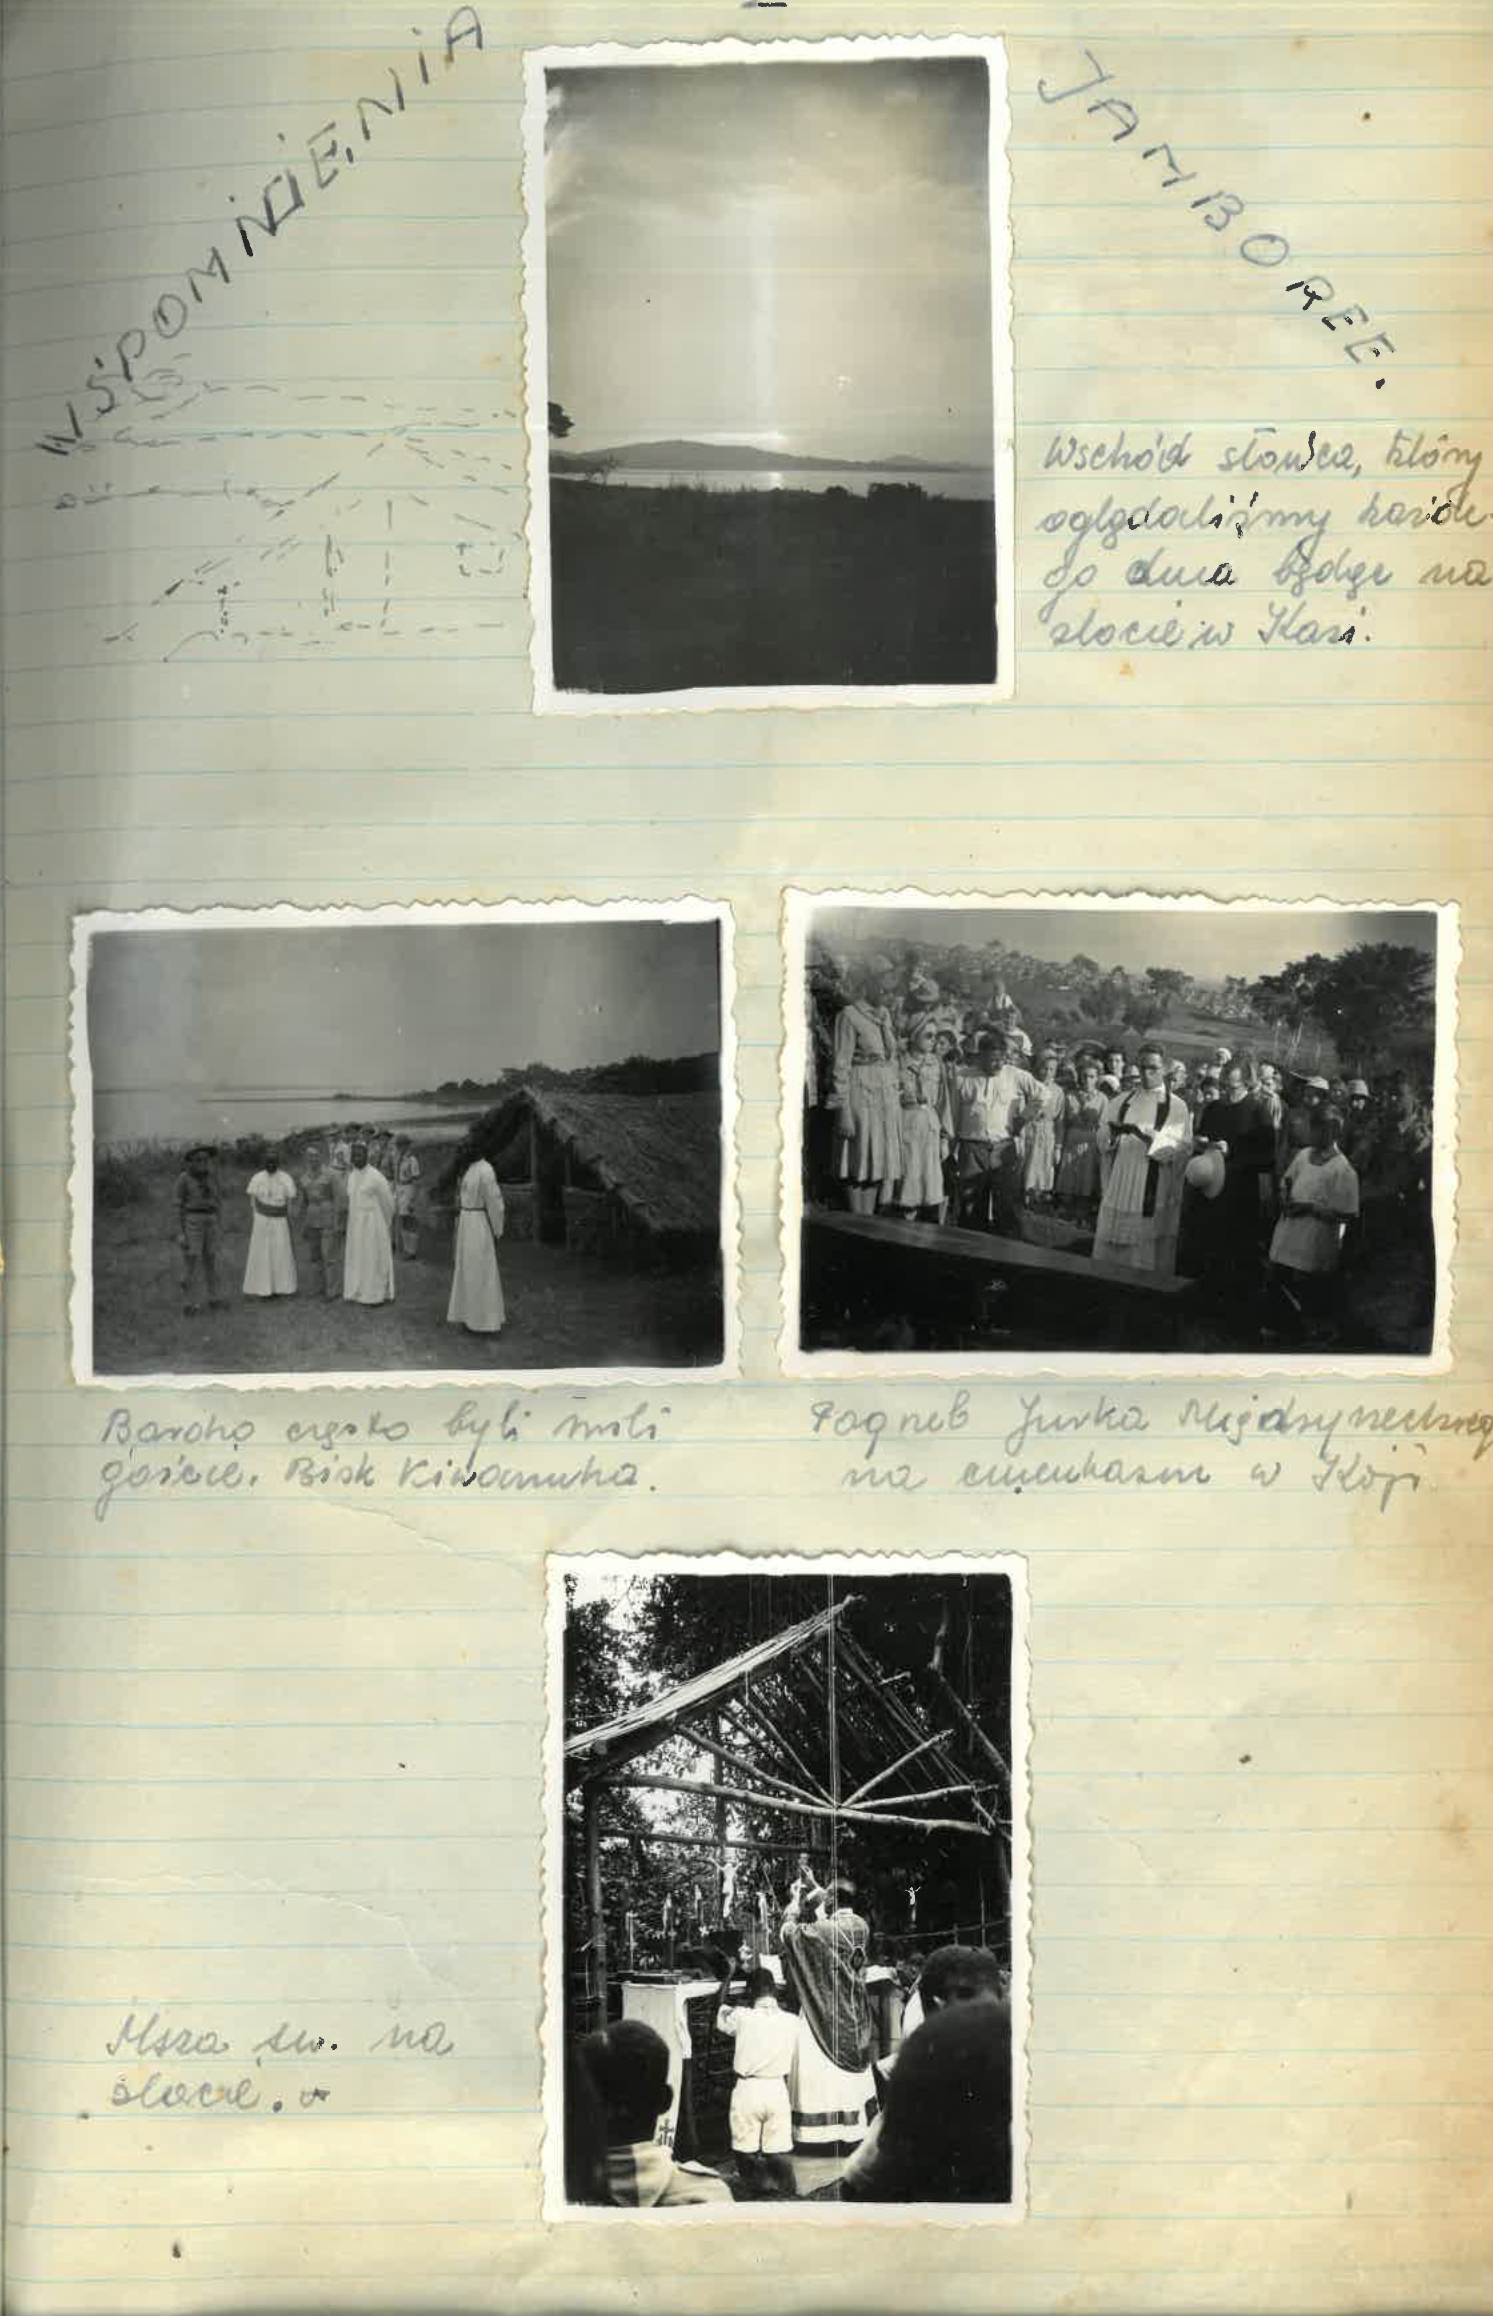 WSPOMNIENIA
JAMBOREE.
Wschód słońca, który
oglądaliśmy każde-
go dnia będąc na
zlocie w Kazi.
Bardzo często byli mili
goście. Bisk Kiwanuka.
Pogrzeb Jurka
na cmentarzu w Koji
Msza św. na
zlocie.